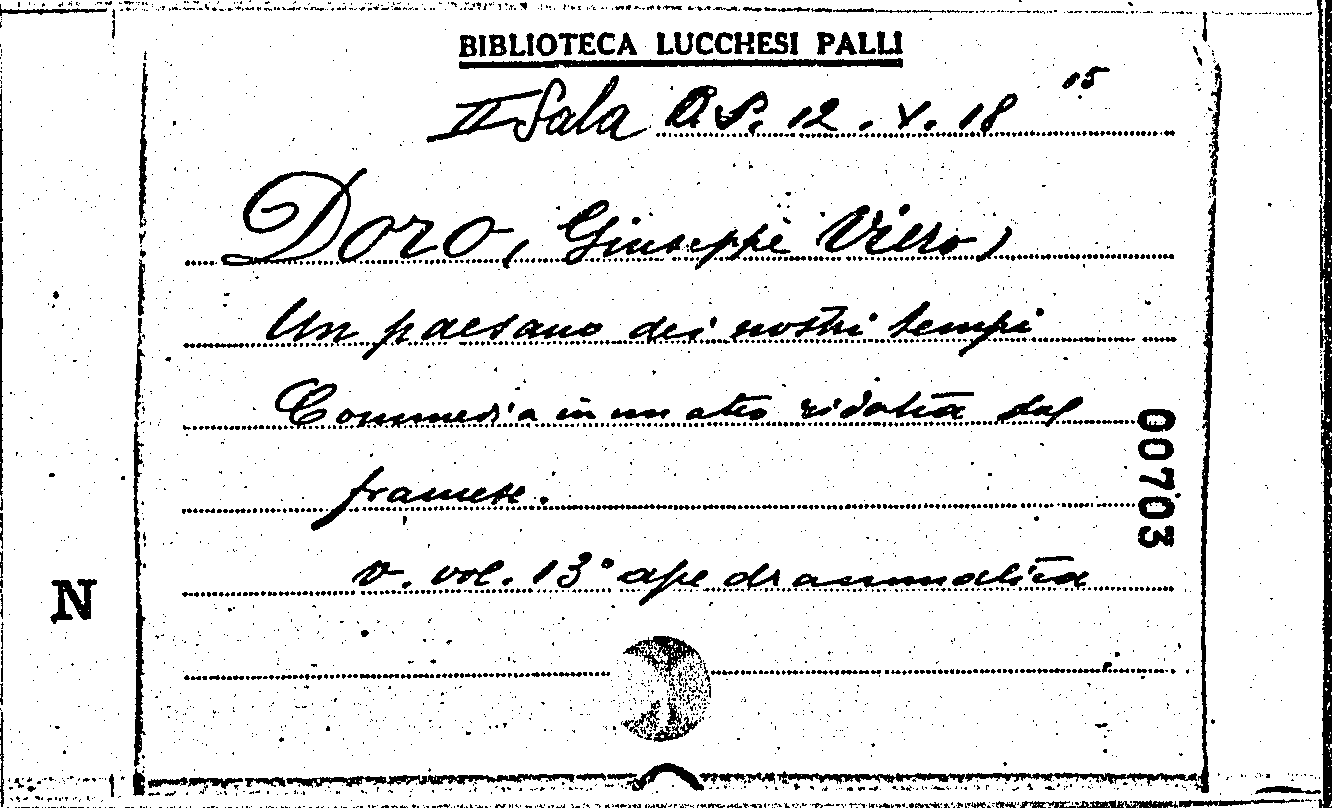 BIBLIOTECA LUCCHESI PALLI
II Sala A S. 12. V. 18 15
Doro, Giuseppe Viero,
Un paesano dei nostri tempi
Commedia in un atto ridotta dal
francese.
v. vol. 13° ape drammatica
00703
N